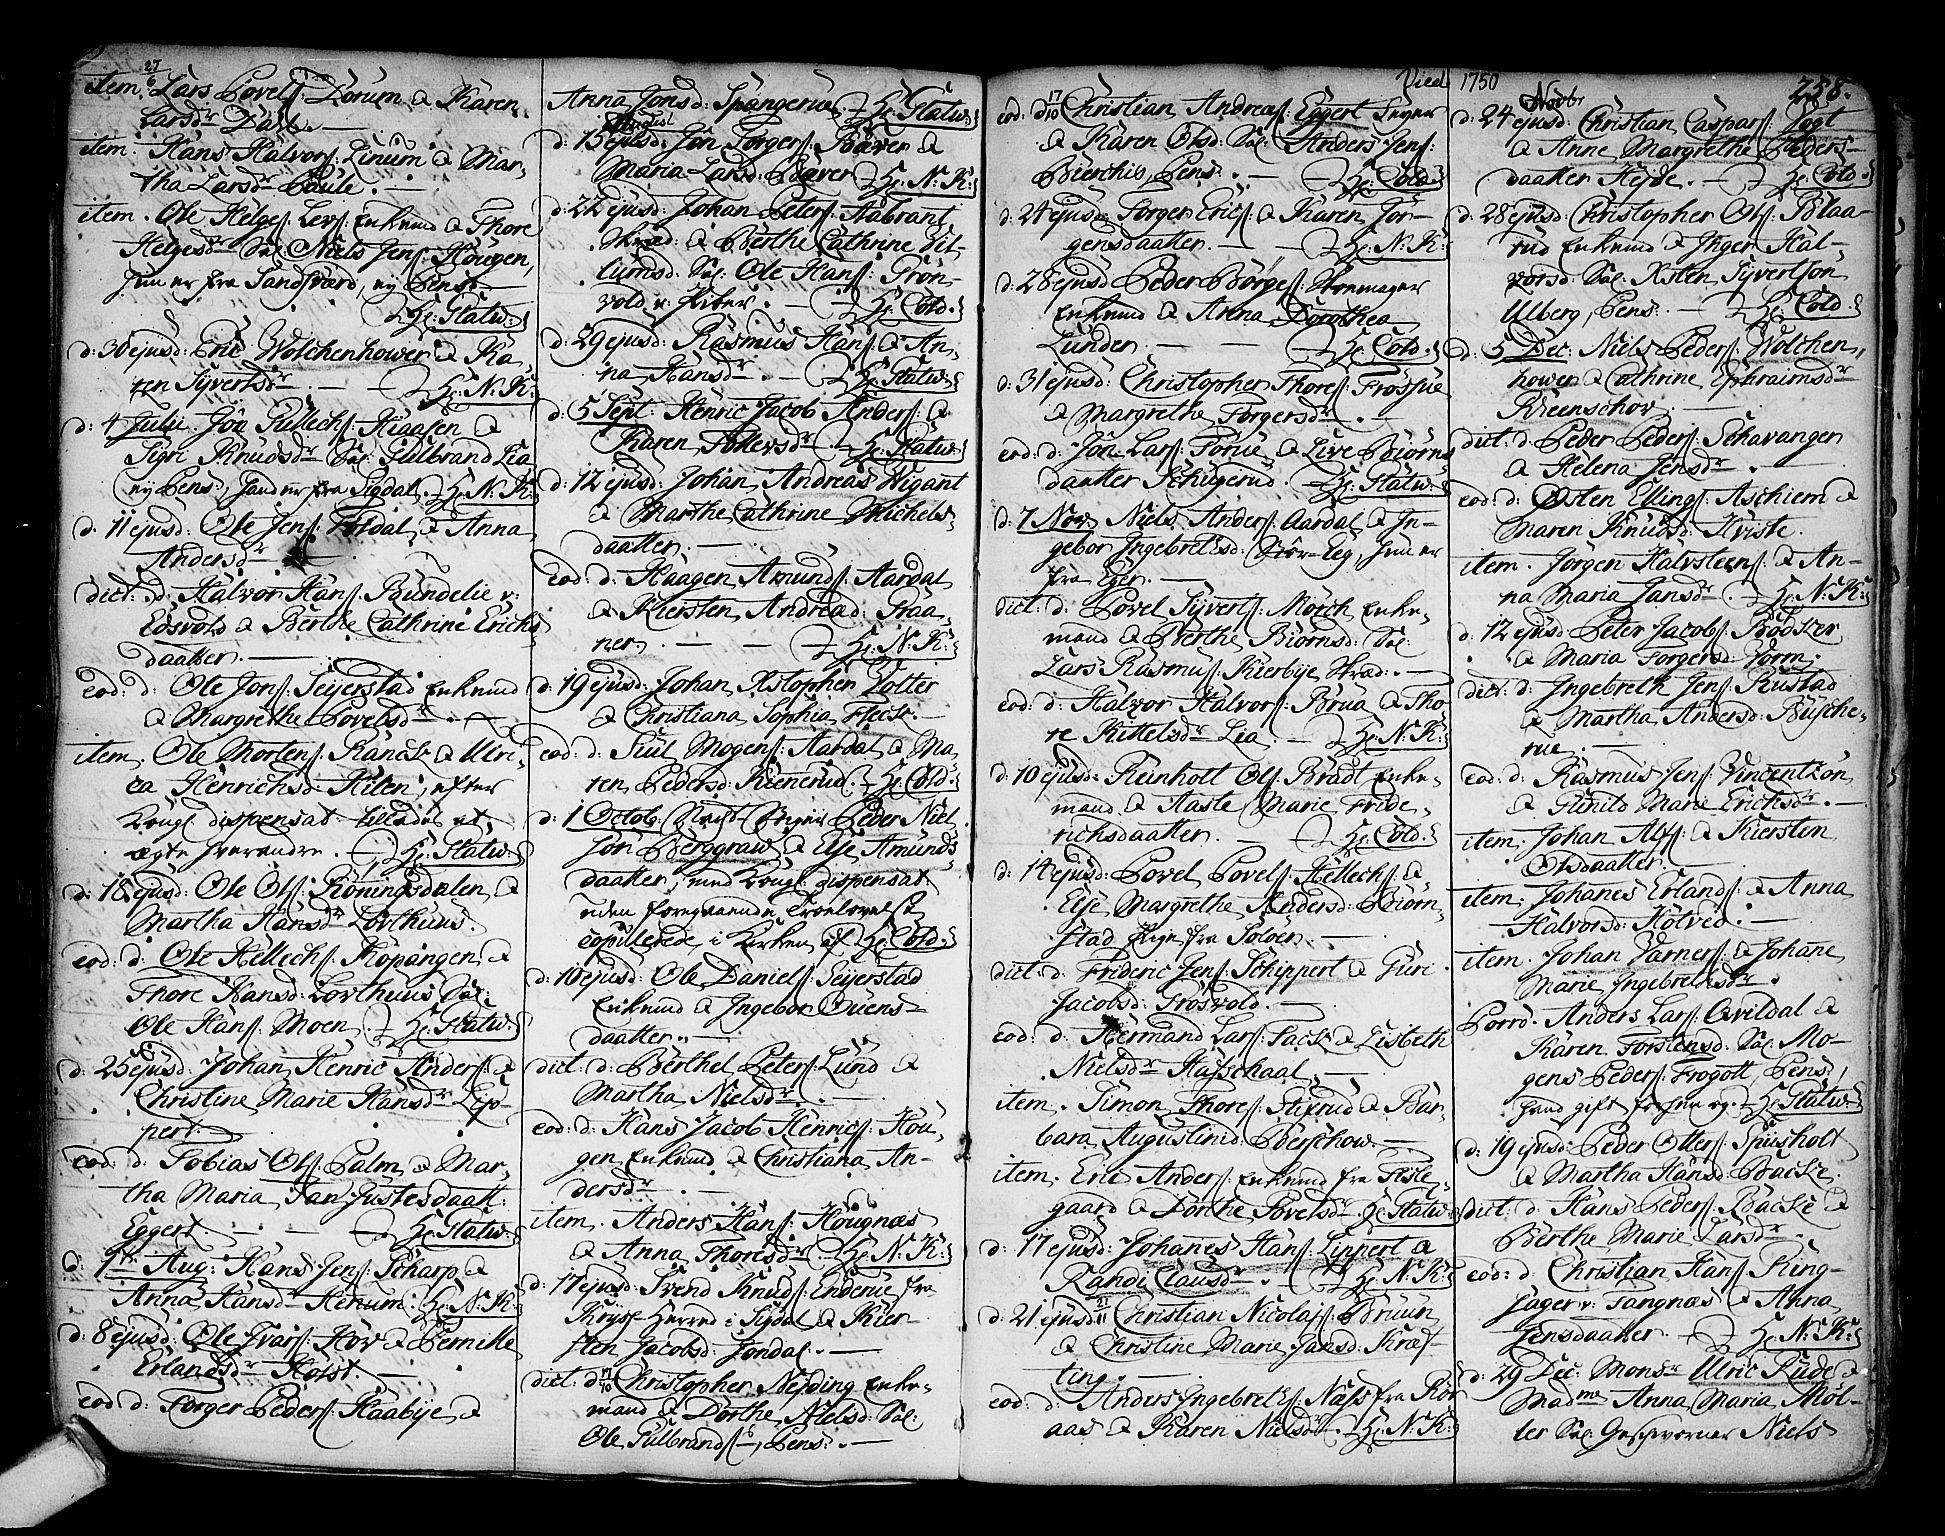 item. 27/6 Lars Povels: Dorum & Karen
Larsdr Dahl. —
item. Hans Halvors: Linum & Mar-
tha Larsdr Paule. —
item. Ole Helges: Lev: Enkemd & Thore
Helgesdr Sal: Niels Jens: Hougen,
hun er fra Sandsværd, ej Pens: —
Hr: Statw:
d: 30 ejusd: Eric Wolchenhower & Ka-
ren Syvertsdr. — Hr: N: K:
d: 4 Julii Jon Gullechs: Haasen &
Sigri Knudsdr Sal: Gulbrand Lia
ej Pens:, hand er fra Sigdal. Hr: N: K:
d: 11 ejusd: Ole Jens: Foldal & Anna
Andersdr —
dict: d: Halvor Hans: Bundelie v:
Edsvold & Berthe Cathrine Erichs
daatter. —
eod: d: Ole Jons: Seijerstad Enkemd
& Margrethe Povelsdr. —
item. Ole Mortens: Ranck & Ulri-
ca Henrichsd: Hilen, efter
Kongl dispensat: tilladet at
ægte hverandre. — Hr: Statw:
d: 18 ejusd: Ole Ols: Koningsdalen &
Martha Hansdr Lovthuus.
eod: d: Ole Hellechs: Kopangen &
Thore Hansd: Lovthuus Sal:
Ole Hans: Moen. Hr: Statw:
d: 25 ejusd: Johan Henric Anders: &
Christine Marie Hansdr Lip-
pert.
eod: d: Tobias Ols: Palm & Mar-
tha Maria Jan Justesdaatt:
Eggert. — Hr: Statw:
d: 1te Aug: Hans Jens: Scharp &
Anna Hansdr Henum. Hr: N: K:
d: 8 ejusd: Ole Ivars: Hov & Pernille
Erlandsdr Holst. —
eod: d: Torger Peders: Haabye &
Anna Jonsd: Spangerue. Hr: Statw:
d: 15 ejusd: Jon Torgers: Bæver &
Maria Larsd: Bæver Hr: N: K:
d: 22 ejusd: Johan Peters: Aabrant
Skræd: & Berthe Cathrine Vil-
lumsd: Sal: Ole Hans: Fron-
vold v: Fiber. — Hr: Cold:
d: 29 ejusd: Rasmus Hans: & An-
na Hansdr. — Hr: Statw:
d: 5 Sept: Henric Jacob Anders: &
Karen Tollevsdr Hr: Statw:
d: 12 ejusd: Johan Andreas Wigant
& Marthe Cathrine Michels-
daatter. —
eod: d: Haagen Amunds: Aardal
& Kiersten Andread: Praa-
ner. — Hr: N: K:
d: 19 ejusd: Johan Xstopher Volter
& Christiana Sophia Fleck. —
eod: d: Juul Mogens: Aardal & Ma-
ren Pedersd: Kienerud. Hr: Cold:
d: 1 Octob: Peder Niel-
sön Berggraw & Else Amunds-
daatter, med Kongl: dispensat:
uden foregaaende Trolovelse
copulerede i Kirken af Hr: Cold:
d: 10 ejusd: Ole Daniels: Seijerstad
Enkemd & Ingebor Ouens-
daatter. —
dict: d: Berthel Peters: Lund &
Martha Nielsdr. —
eod: d: Hans Jacob Henrics: Hou-
gen Enkemd & Christiana An-
dersdr. —
item. Anders Hans: Hougnæs
& Anna Thoresdr. Hr: N: K:
d: 17 ejusd: Svend Knuds: Enderue fra
Krys Herred i Sigdal & Kier-
sten Jacobsd: Jondal. —
dict: d: 17/10 Christopher Nejding Enke-
mand & Dorthe Nielsd: Sal:
Ole Gulbrands:, Pens: —
Viede 1750
258.
eod: d: 17/10 Christian Andreas: Eggert
& Karen Olsd: Sal: Anders Jens:
Bierchis, Pens: — Hr: Cold:
d: 24 ejusd: Torger Erics: & Karen Jör-
gensdaatter. — Hr: N: K:
d: 28 ejusd: Peder Börges: Skoemager
Enkemd & Anna Dorothea
Lunder — Hr: Cold:
d: 31 ejusd: Christopher Thores: Frosjue
& Margrethe Torgersdr. —
eod: d: Jon Lars: Torue & Live Biörns
daatter Schugerud. Hr: Statw:
d: 7 Nov: Niels Anders: Aardal & In-
gebor Ingebretsd: Stor-Eeg, hun er
fra Eger. —
dict: d: Povel Syverts: Mörch Enke-
mand & Berthe Biörnsd: Sal:
Lars Rasmus: Kierbye Skræd: —
eod: d: Halvor Halvors: Brua & Tho-
re Kittelsdr Lia. — Hr: N: K:
d: 10 ejusd: Reinholt Ols: Bradt Enke-
mand & Aaste Marie Fride-
richsdaatter. — Hr: Cold:
d: 14 ejusd: Povel Povels: Hellechs: &
Else Margrethe Andersd: Biörn-
stad Pige fra Soloer. —
dict: d: Frideric Jens: Schippert & Guri
Jacobsd: Frosvold. —
eod: d: Hermand Lars: Sack & Lisbeth
Nielsdr Hasschaal. —
item. Simon Thores: Stifrud & Bar-
bara Augustinid: Berschow. —
item. Eric Anders: Enkemd fra Fisle-
gaard & Dorthe Povelsdr Hr: Statw:
d: 17 ejusd: Johanes Hans: Lippert &
Randi Clausdr. Hr: N: K:
d: 21 ejusd: 21/11 Christian Nicolajs: Bruun
& Christine Marie Jansd: Kras-
ting. —
eod: d: Anders Ingebrets: Næss fra Rör
aas & Karen Nielsdr. Hr: N: K:
Novbr
d: 24 ejusd: Christian Caspars: Vogt
& Anne Margrethe Peders-
daatter Hejde. — Hr: Cold:
d: 28 ejusd: Christopher Ols: Blaa-
rud Enkemd & Inger Hal-
vorsd: Sal: Xsten Syvertsön
Ulberg, Pens: — Hr: Cold:
d: 5 Dec: Niels Peders: Wolchen-
hower & Cathrine Ephraimsdr
Kieenschov. —
dict: d: Peder Peders: Schavanger
& Helena Jensdr. —
eod: d: Østen Ellings: Aschiem &
Maren Knudsd: Kviste.
item. Jörgen Halvsteens: & An-
na Maria Jansdr. Hr: N: K:
d: 12 ejusd: Peter Jacobs: Bödker
& Maria Torgersd: Vorm.
dict: d: Ingebreth Jens: Rustad
& Martha Andersd: Busche-
rue. —
eod: d: Rasmus Jens: Vincentzön
& Gunild Marie Erichsdr. —
item. Johan Alfs: & Kiersten
Olsdaatter. —
item. Johanes Erlands: & Anna
Halvorsd: Kolved. —
item. Johan Varners: & Johane
Marie Ingebretsdr.
Porrd. Anders Lars: Qvildal &
Karen Torstensd: Sal: Mo-
gens Peders: Frogott, Pens:,
hand gift för hun og. Hr: Statw:
d: 19 ejusd: Peder Otters: Spusholt
& Martha Hansd: Backe.
dict: d: Hans Peders: Backe &
Berthe Marie Larsdr.
eod: d: Christian Hans: Ring-
Jager v: Tangnæs & Anna
Jensdaatter. — Hr: N: K:
d: 29 Dec: Monsr Ulric Rude &
Madme Anna Maria Möl-
ler Sal: Geschworner Niels